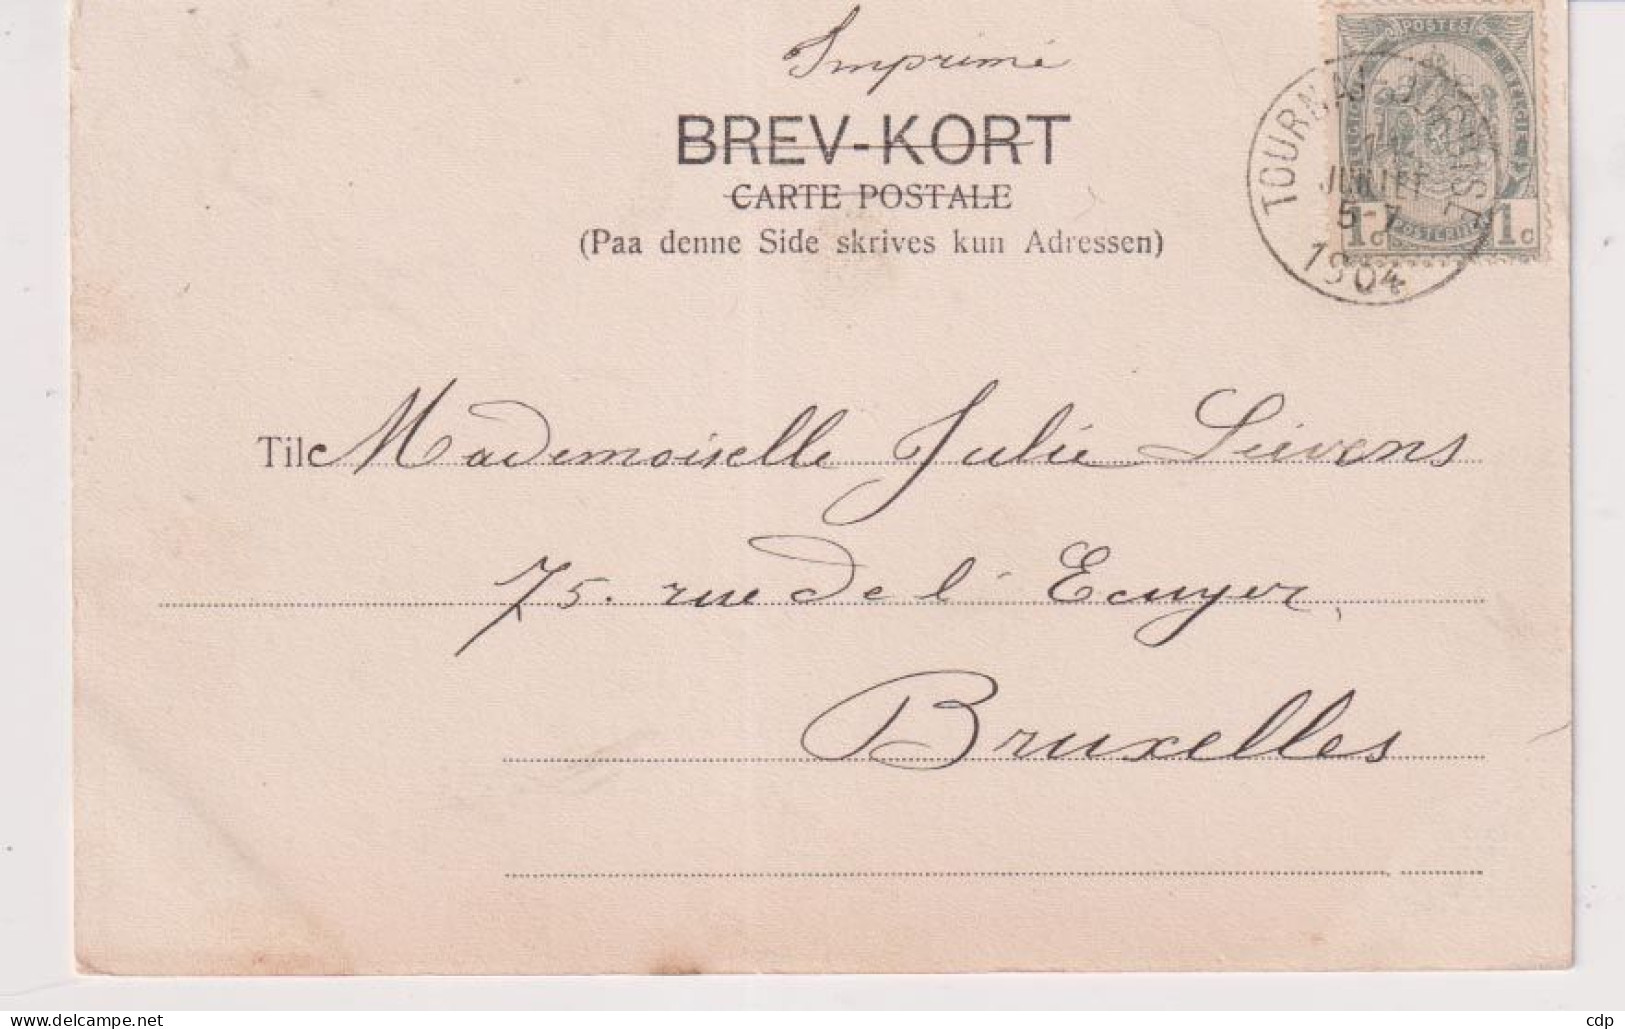 Imprimé
BREV-KORT
CARTE POSTALE
(Paa denne Side skrives kun Adressen)
POSTES
1c 1c
TOURNAI
JUILLET
5-7
1904
Til Mademoiselle Julie Lievens
75. rue de l'Ecuyer,
Bruxelles
cdp